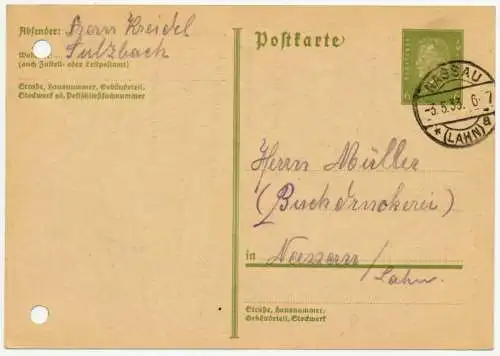 Absender: Herm Kreidel
Sulzbach
(auch Zustell- oder Leitpostamt)
Straße, Hausnummer, Gebäudeteil,
Stockwerk od. Postschließfachnummer
Postkarte
NASSAU
-3.5.33. 6-7
* (LAHN) a
Herrn Müller
(Buchdruckerei)
in Nassau
/Lahn.
Straße, Hausnummer,
Gebäudeteil, Stockwerk